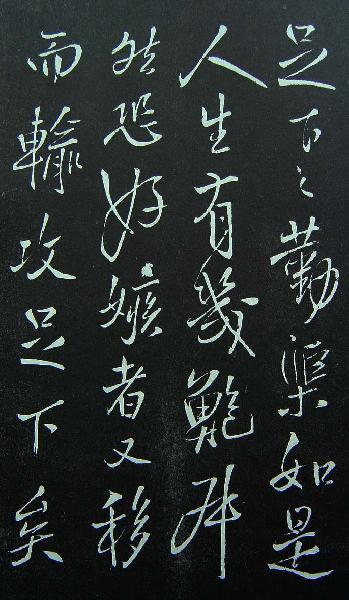 足下之勤渠如是
人生有幾鮑叔
然恐好嫉者又移
而輸攻足下矣